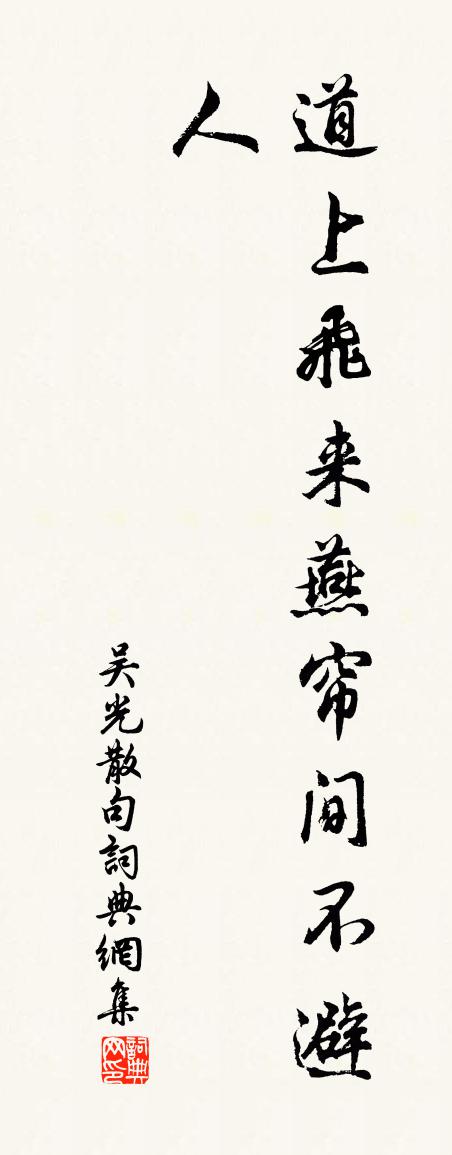 道上飛来燕帘间不避
人
吴光散句詞典網集
詞典网印